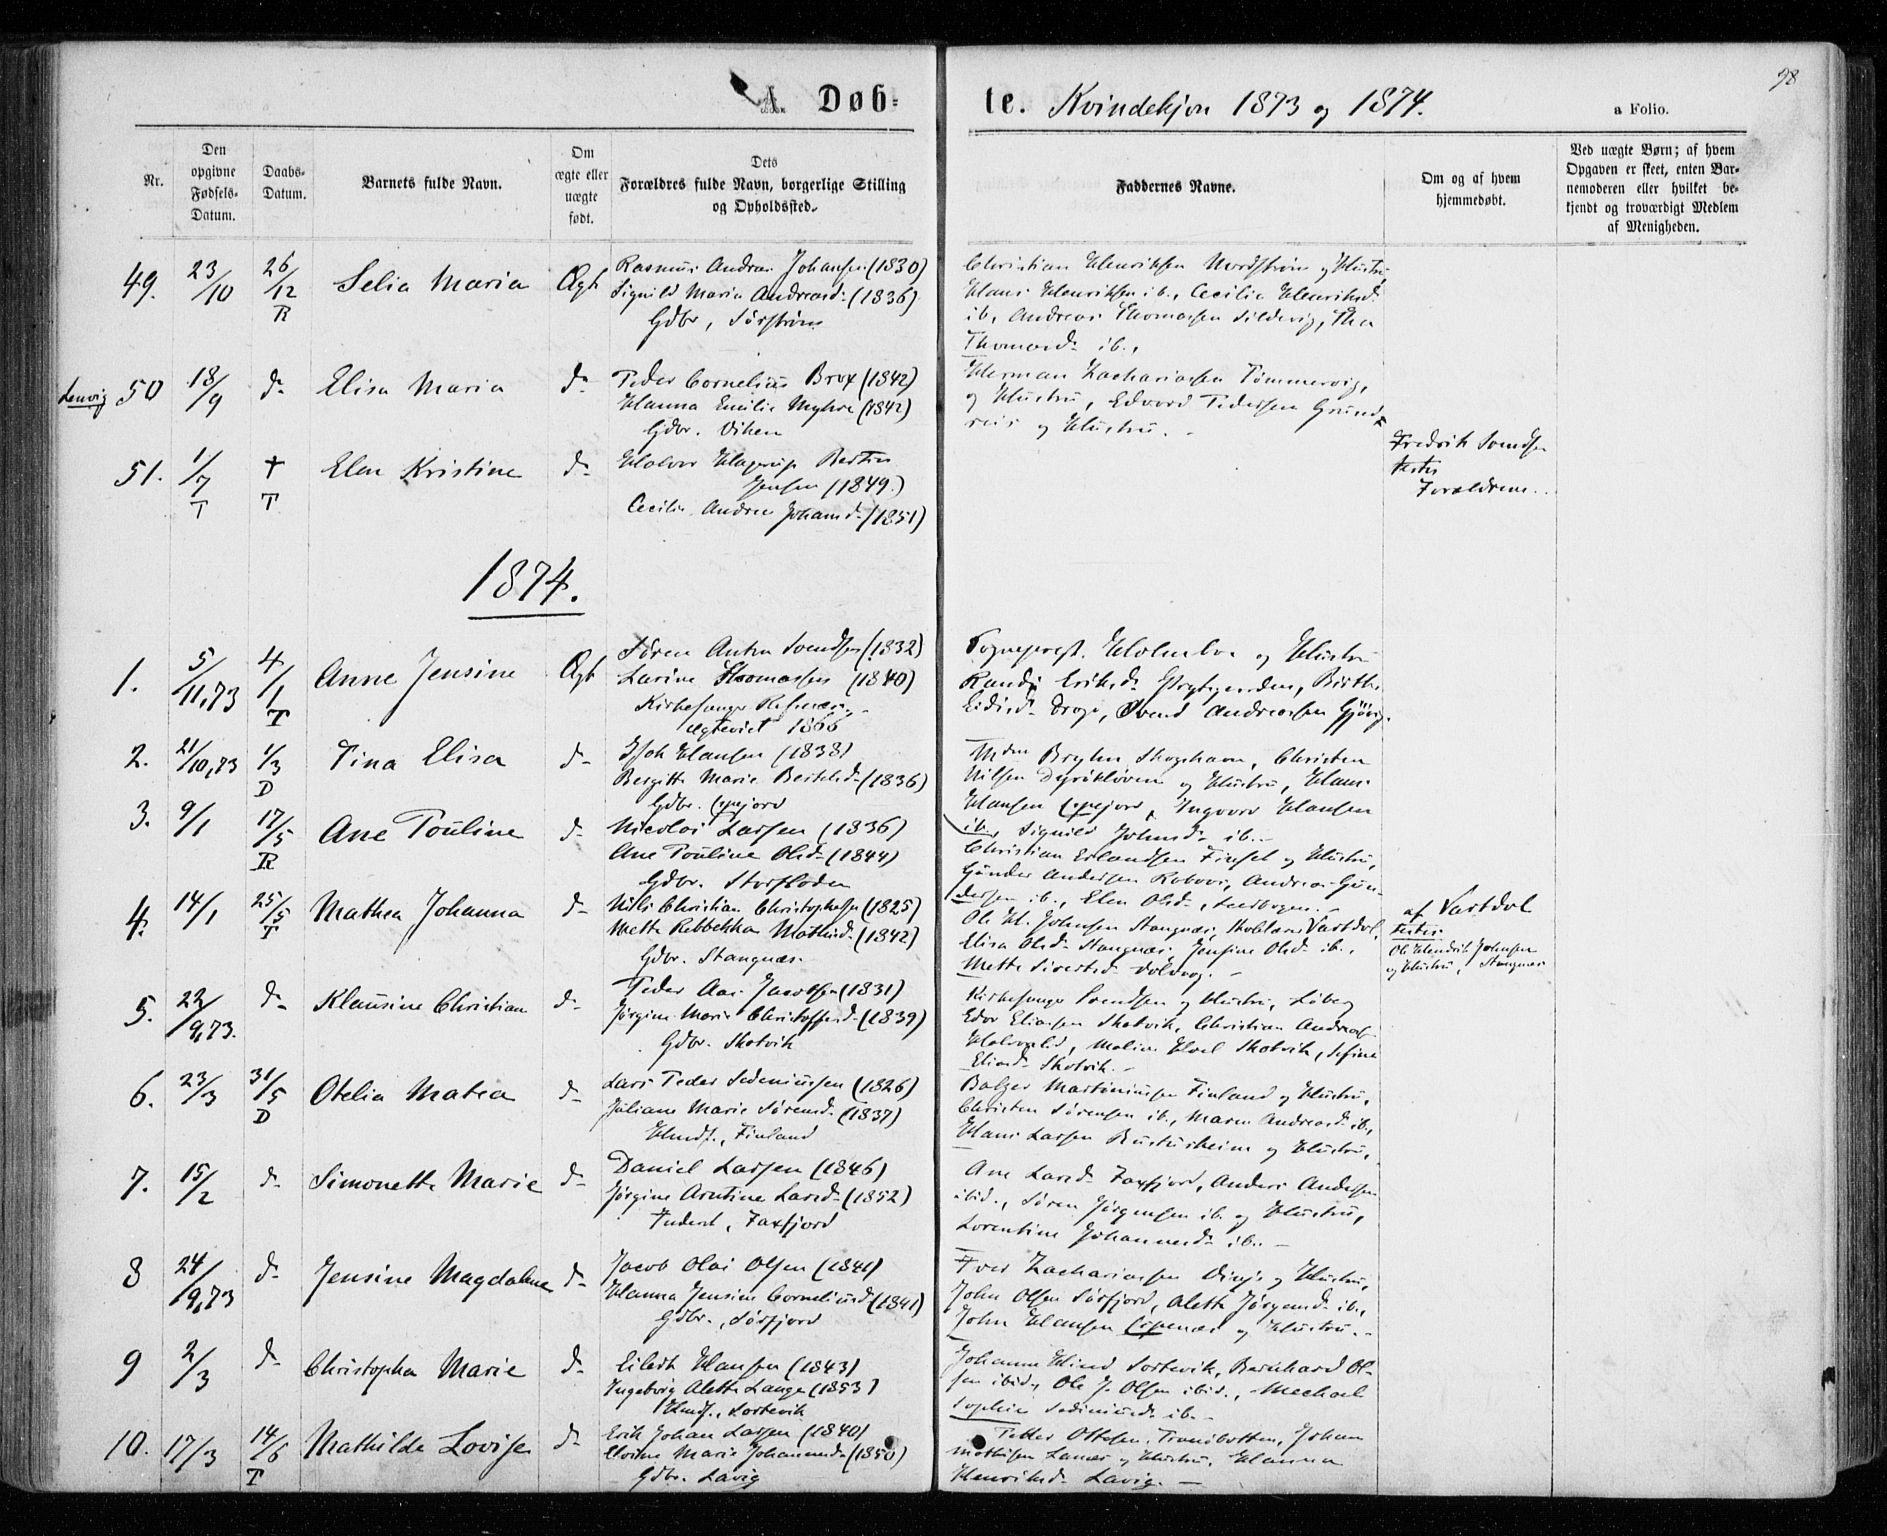 98
A Døb-
te. Kvindekjøn 1873 og 1874.
a Folio.
Nr.
Den
opgivne
Fødsels-
Datum.
Daabs-
Datum.
Barnets fulde Navn.
Om
ægte eller
uægte
født.
Dets
Forældres fulde Navn, borgerlige Stilling
og Opholdssted.
Faddernes Navne.
Om og af hvem
hjemmedøbt.
Ved uægte Børn; af hvem
Opgaven er skeet, enten Bar-
nemoderen eller hvilket be-
kjendt og troværdigt Medlem
af Menigheden.
49. 23/10 26/12 R Selia Maria Ægt
Rasmus Andreas Johansen (1830)
Signild Maria Andreasd. (1836)
Gdbr, Sørstrøm
Christian Henriksen Nordstrøm og Hustru
Hans Henriksen ib., Cecilie Henriksd.
ib, Andreas Thomassen Sildvig,
Thomasd. ib.,
Lenvig 50 18/9 d. Elisa Maria d.
Peder Cornelius Brox (1842)
Hanna Emilie Myhre (1842)
Gdbr. Viken
Herman Zachariassen Tømmervig,
og Hustru, Edvard Pedersen Grund-
reis og Hustru.
51. 1/7 T † T Elen Kristine d.
Halvor Hagerup Bertin
Jensen (1849.)
Cecilie Andrea Johansd. (1851)
Fredrik Svendsen
testes
Forældrene.
1874.
1. 5/11,73 4/1 T Anne Jensine Ægt
Søren Anton Svendsen (1832)
Larine Thomassen (1840)
Kirkesanger
Ægteviet 1866
Sogneprest Holmboe og Hustru
Randi Eriksd. Prestegaarden, Birthe
Eidisd. Drogi, Svend Andreassen Gjövig.
2. 21/10,73 1/3 D Tina Elisa d.
Isak Hansen (1838)
Bergitte Marie Bertelsd. (1836)
Gdbr. Espejord
Mdm Bryhn Skoghavn, Christen
Nilsen Dyrikløven og Hustru, Hans
Hansen Espejord, Ingvard Hansen
ib., Signild Johnsd. ib.
3. 9/1 17/5 R Ane Pouline d.
Nicolai Larsen (1836)
Ane Pouline Olsd. (1844)
Gdbr. Storfloden
Christian Erlandsen Finset og Hustru,
Gunder Andersen Robovi, Andreas Gun-
dersen ib., Elen Olsd.,
4. 14/1 25/5 T Mathea Johanna d.
Nils Christian Christophersen (1825)
Mette Rebbekka Mathisd. (1842)
Gdbr. Stangnæs.
Ole H. Johnsen Stangnæs, Skolelærer Vastdal,
Elisa Olsd. Stangnæs, Jensine Olsd. ib.,
Mette Sivertsd.
af Vastdal
testes
Ole Hendrik Johnsen
og Hustru, Stangnæs
5. 22/9,73. d. Klausine Christian d.
Peder Aas Jacobsen (1831)
Jørgine Marie Christoffersd. (1839)
Gdbr. Skotvik
Kirkesanger Svendsen og Hustru,
Edor Eliassen Skotvik, Christian Andreas-
Halvorlid, Malin Hoel Skotvik, Sefine
Eliasd. Skotvik.
6. 23/3 31/5 D Otelia Matea d.
Lars Peder Sedeniussen (1826)
Juliane Marie Sørensd. (1837)
Hmdf., Finland
Balzer Martiniussen Finland og Hustru,
Christen Sørensen ib., Maren Andreasd. ib.,
Hans Larsen Rusturheim og Hustru,
7. 15/2 d. Simonette Marie d.
Daniel Larsen (1846)
Jørgine Arntine Larsd. (1852)
Inderst, Faxfjord
Ane Larsd. Faxfjord, Anders Andersen
ibid., Søren Jørgensen ib. og Hustru,
Lorentine Johannesd. ib.
8 24/9,73 d. Jensine Magdalene d.
Jacob Olai Olsen (1841)
Hanna Jensine Corneliusd. (1841)
Gdbr., Sørfjord
Iver Zachariassen og Hustru,
John Olsen Sørfjord, Alette Jørgensd. ib.,
John Hansen Espenes og Hustru.
9 2/3 d. Christopha Marie d.
Eilert Hansen (1843)
Ingeborg Alette Lange (1853)
Hmdf., Sortevik
Johanne Hind Sortevik, Bernhard Ol-
sen ibid, Ole J. Olsen ibid.,
Sophie Sediniusd. ib.
10. 17/3 14/6 T Mathilde Lovise d.
Erik Johan Larsen (1840)
Marie Johannesd. (1850)
Gdbr. Lavig
Petter Ottesen, Tranebotten, Johan
Mathisen Lanes og Hustru, Hanna
Henriksd. Lavig.